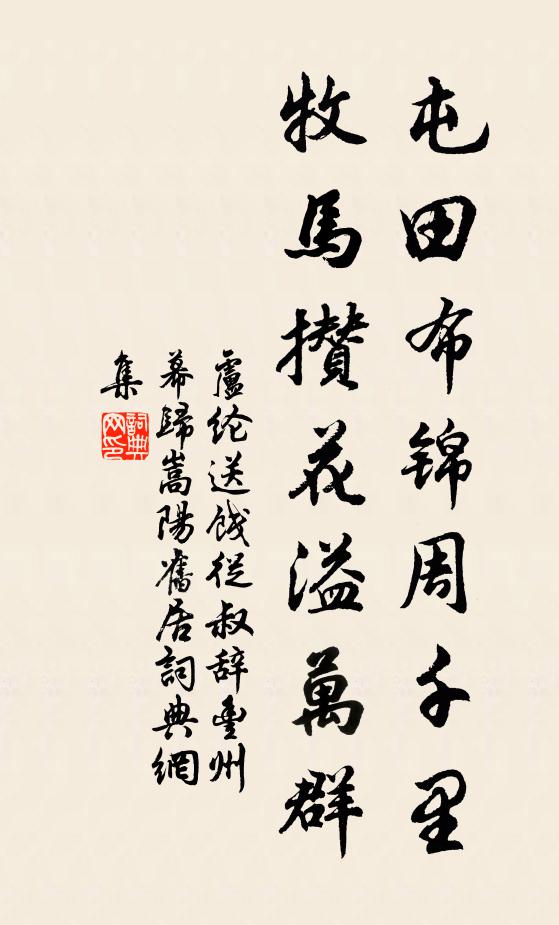 屯田布锦周千里
牧馬攢花溢萬群
盧纶送餞從叔辞豐州
幕歸嵩陽舊居詞典網
集
詞典
网印